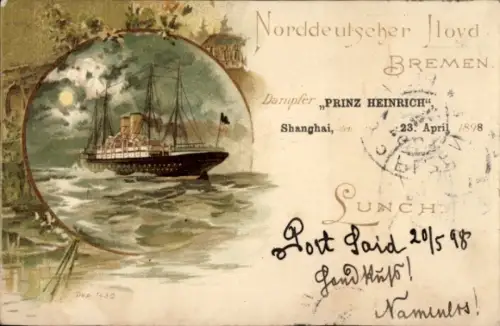 Norddeutscher Lloyd
BREMEN.
Dampfer „PRINZ HEINRICH“
Shanghai, den 23. April 1898
LUNCH.
Port Said 20/5 98
Handkuss!
Namenlos!